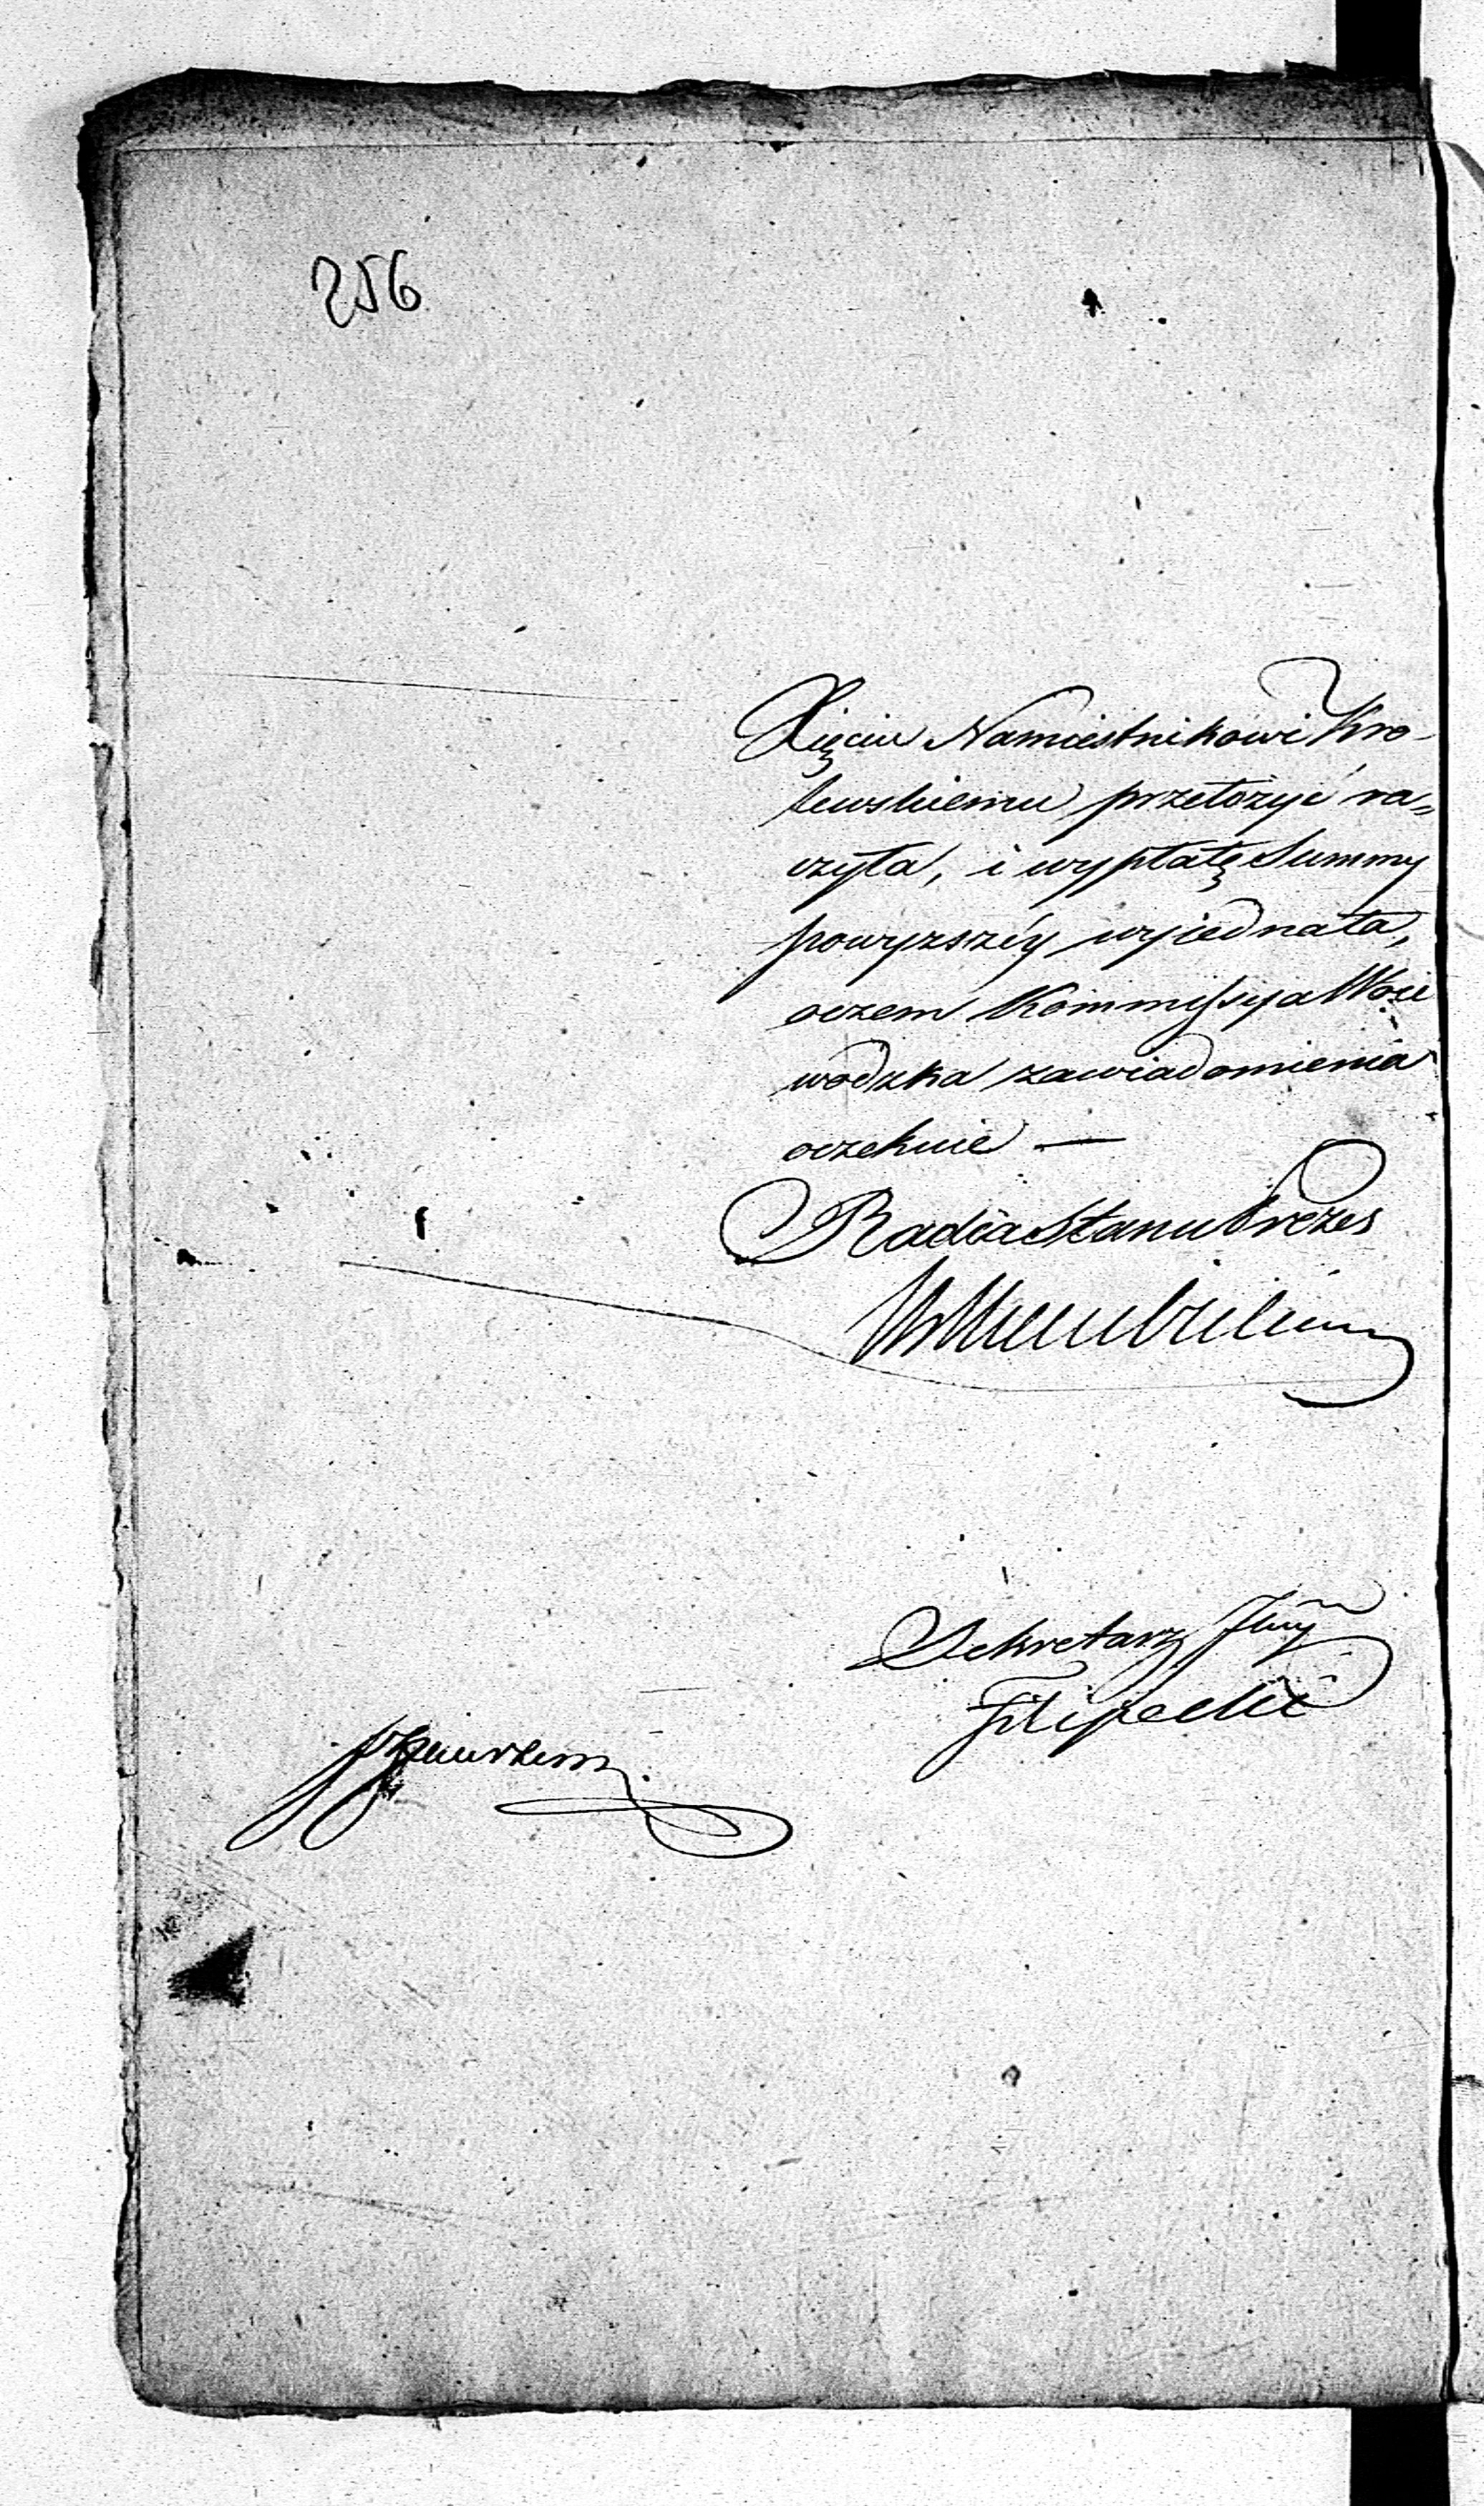 256
Xięciu Namiestnikowi Kro-
lewskiemu przełożyć ra„
czyła, i wypłatę Summy
powyższéy wyiednała,
oczem Kommyssya Woie
wodzka zawiadomienia
oczekuie —
Radca Stanu Prezes
Sekretarz Jlny
Filipecki